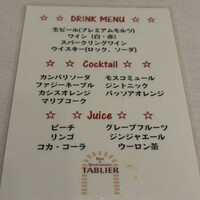 ☆ ☆ DRINK MENU ☆ ☆
生ビール(プレミアムモルツ)
ワイン (白・赤)
スパークリングワイン
ウイスキー(ロック、ソーダ)
☆ ☆ Cocktail ☆ ☆
カンパリソーダ モスコミュール
ファジーネーブル ジントニック
カシスオレンジ パッソアオレンジ
マリブコーク
☆ ☆ Juice ☆ ☆
ピーチ グレープフルーツ
リンゴ ジンジャエール
コカ・コーラ ウーロン茶
TABLIER